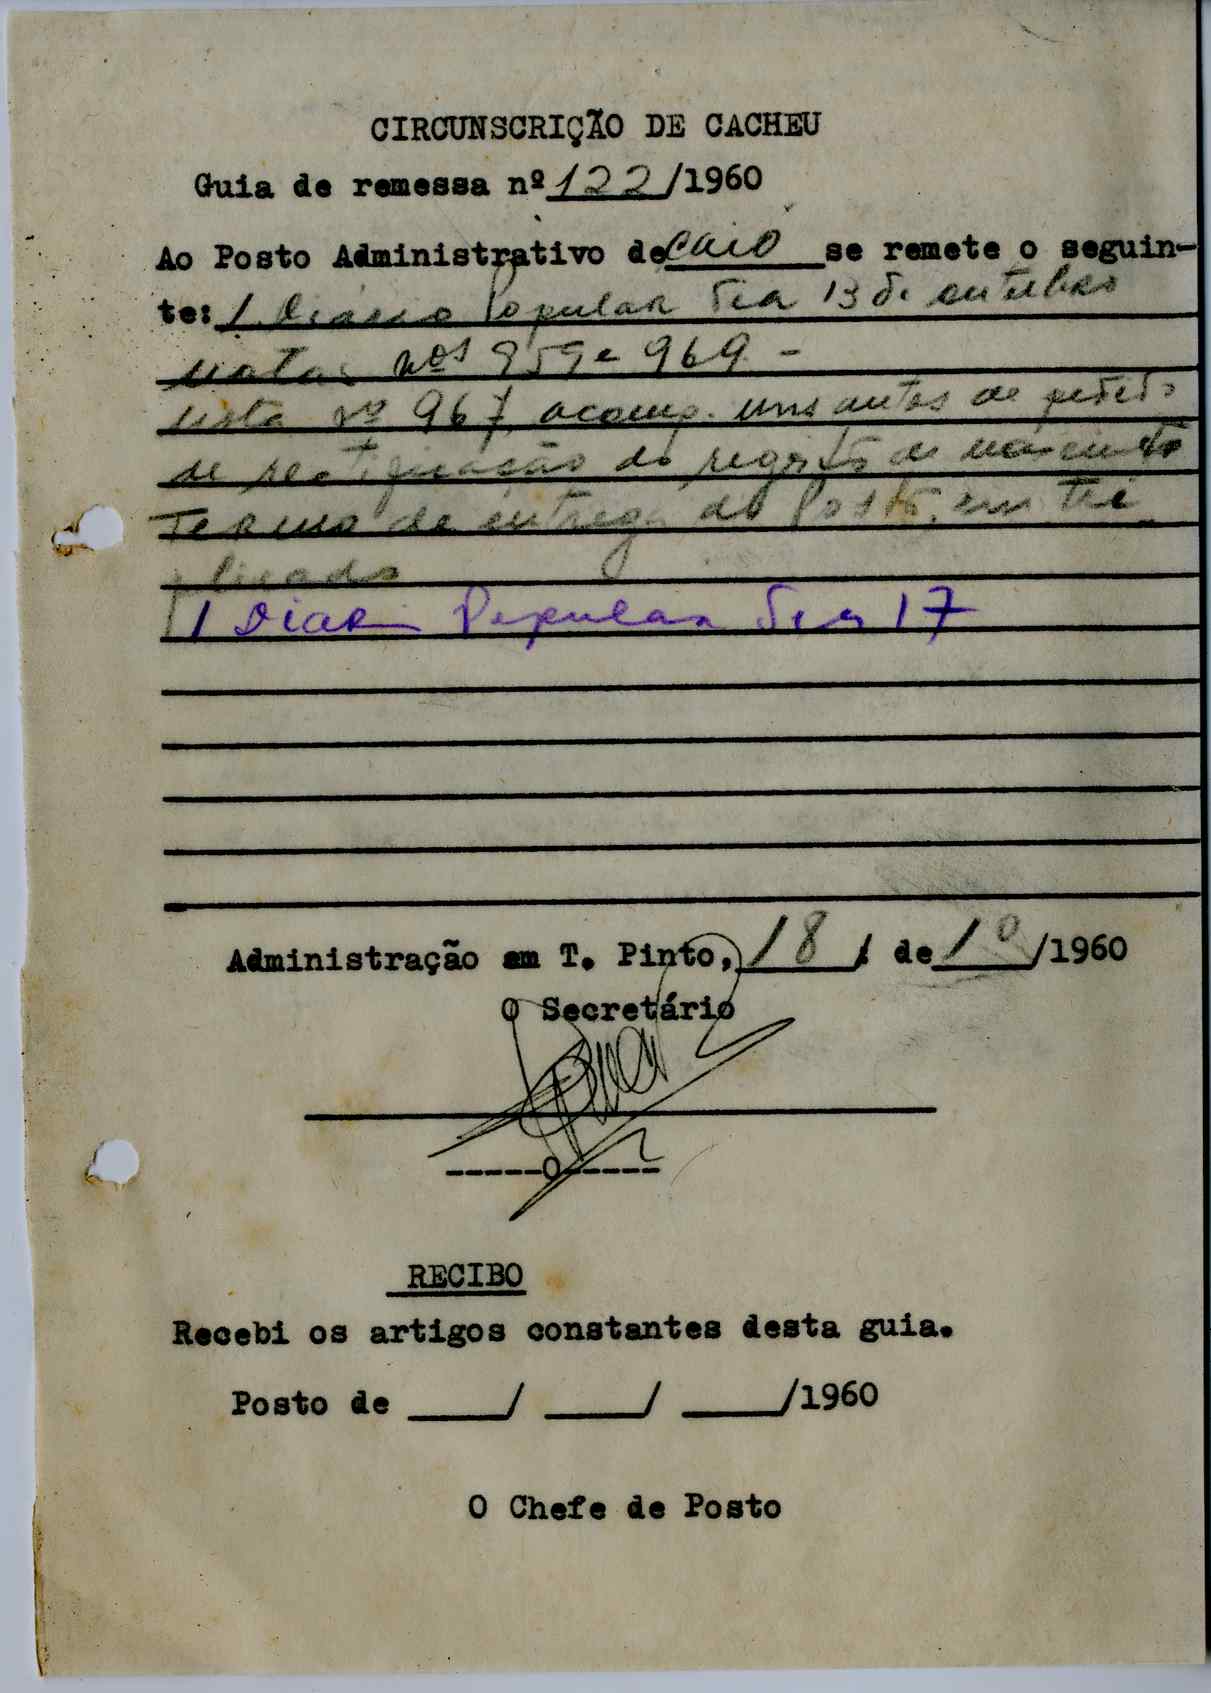 CIRCUNSCRIÇÃO DE CACHEU
Guia de remessa nº 122/1960
Ao Posto Administrativo de Caió se remete o seguin-
te: 1 Diário Popular dia 13 de outubro
notas nos 959 e 969 -
nota nº 967, acomp. uns autos de pedido
de rectificação do registo de nascimento
Termo de entrega do Posto, em tri
plicado
1 Diari Popular dia 17
Administração em T. Pinto, 18 / de 10/1960
O Secretário
-----O-----
RECIBO
Recebi os artigos constantes desta guia.
Posto de ____/ ____/ ____/1960
O Chefe de Posto